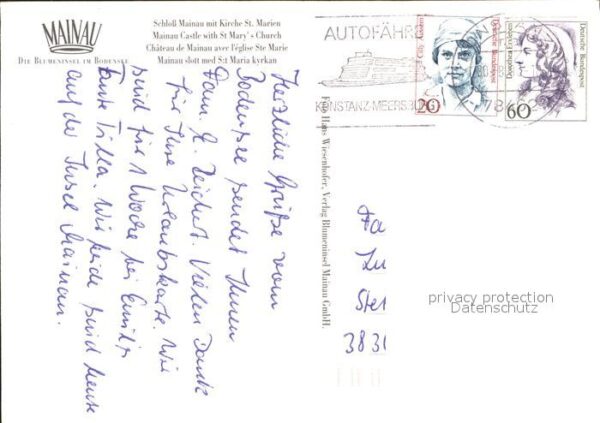 MAINAU
DIE BLUMENINSEL IM BODENSEE
Schloß Mainau mit Kirche St. Marien
Mainau Castle with St Mary's Church
Château de Mainau avec l'église Ste Marie
Mainau slott med S:t Maria kyrkan
AUTOFÄHRE
KONSTANZ-MEERSBURG
Cilly Aussem
Deutsche Bundespost
20
Dorothea Erxleben
Deutsche Bundespost
60
Herzliche Grüße vom
Bodensee sendet Ihnen
Fam. Reichert. Vielen Dank
für Ihre Urlaubskarte. Wir
sind für 1 Woche bei
Tante Villa. Wir beide sind heute
auf der Insel Mainau.
Foto Hans Wiesenhofer, Verlag Blumeninsel Mainau GmbH.
Fa
Lu
Ster
3831
privacy protection
Datenschutz